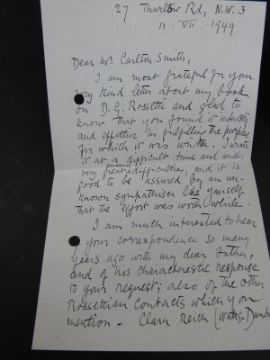 27 Thurlow Rd, N.W. 3
11 . VII . 1949
Dear Mr Carlton Smith,
I am most grateful for your
very kind letter about my book
on D. G. Rossetti and glad to
know that you found it interesting
and effective in fulfilling the purpose
for which it was written. I wrote
it at a difficult time and under
very great difficulties, and it is
good to be assured by an un-
known sympathiser like yourself
that the effort was worth while.
I am much interested to hear
of your correspondence so many
years ago with my dear father,
and of his characteristic response
to your request; also of the other
Rossettian contacts which you
mention. Clara Reich (Watts-Dunton